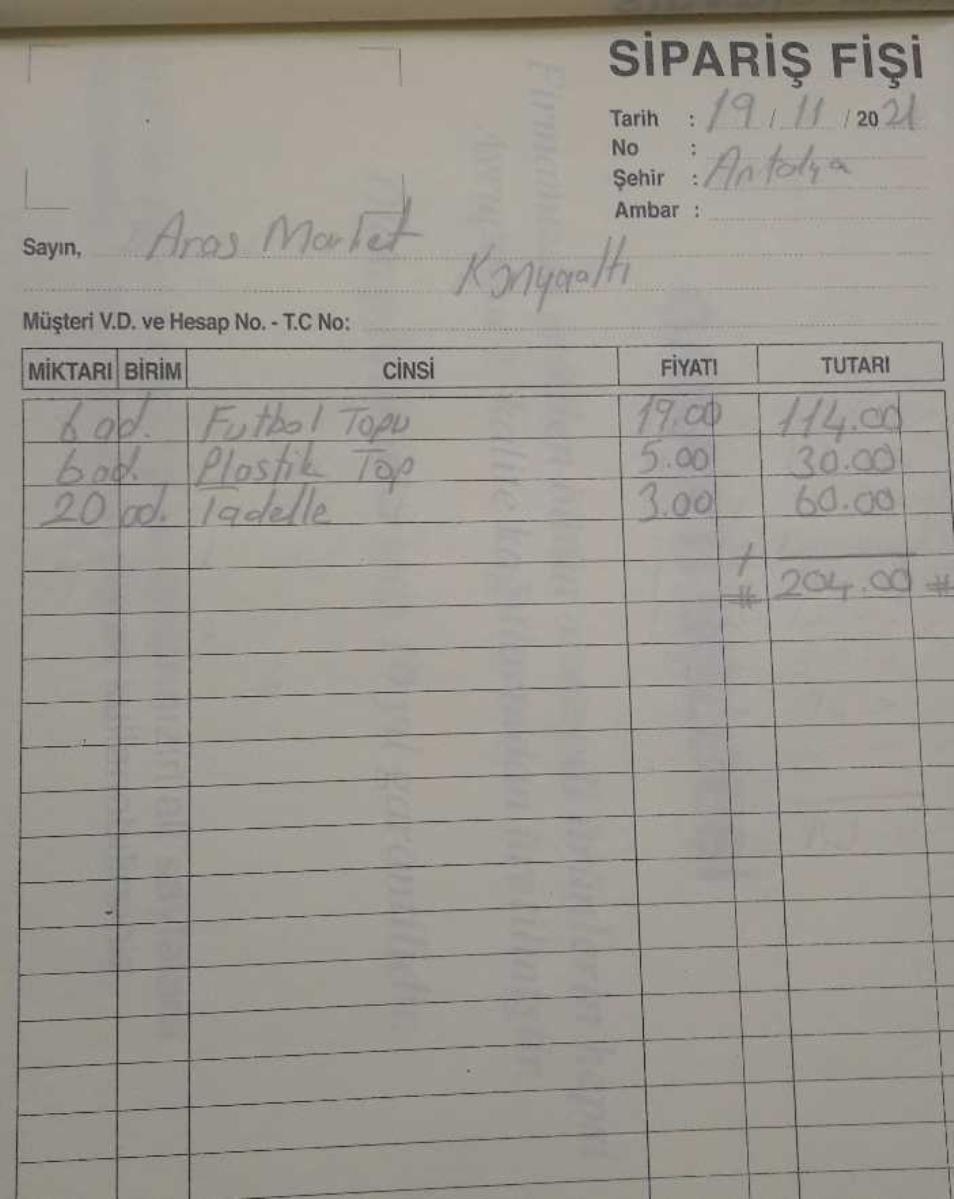 SİPARİŞ FİŞİ
Tarih : 19 / 11 / 20 21
No :
Şehir : Antalya
Ambar :
Sayın, Aras Market
Konyaaltı
Müşteri V.D. ve Hesap No. - T.C No:
MİKTARI BİRİM CİNSİ FİYATI TUTARI
6 ad. Futbol Topu 19.00 114.00
6 ad. Plastik Top 5.00 30.00
20 ad. Tadelle 3.00 60.00
# 204.00 #